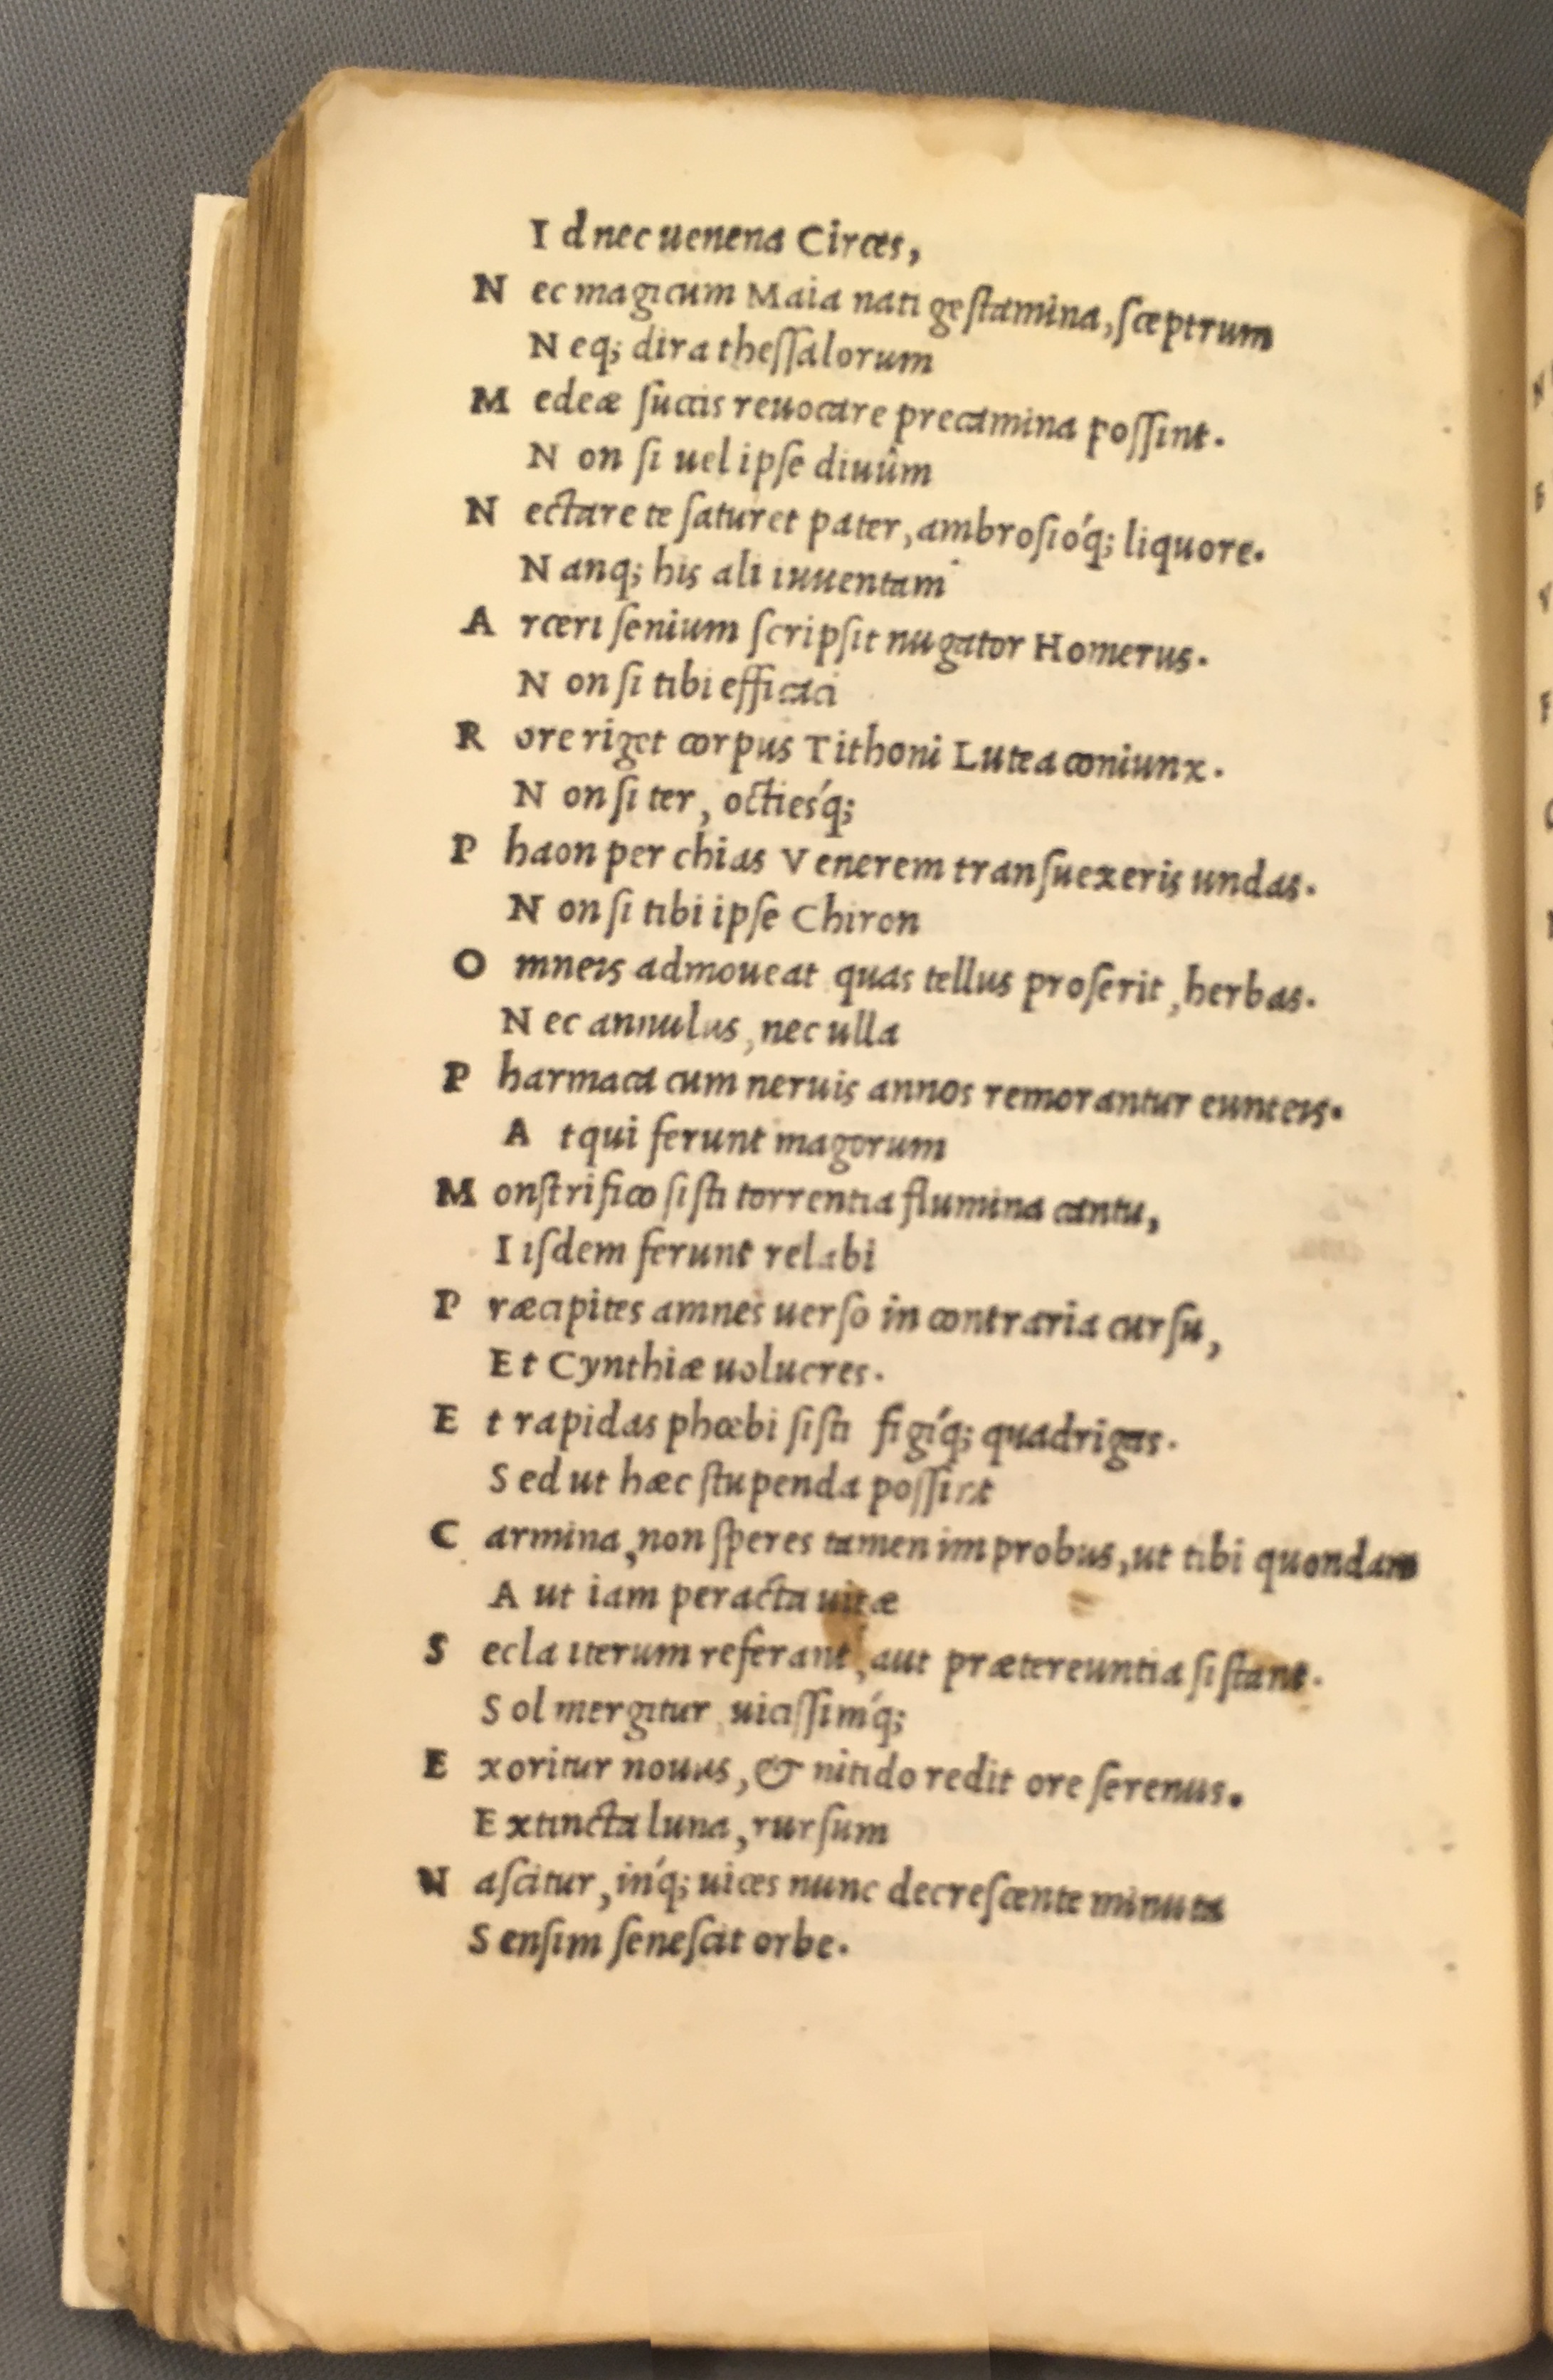 Id nec uenena Circes,
Nec magicum Maia nati gestamina, sceptrum
Neq; dira thessalorum
Medeæ succis reuocare precamina possint.
Non si uel ipse diuûm
Nectare te saturet pater, ambrosióq; liquore.
Nanq; his ali iuuentam
Arceri senium scripsit nugator Homerus.
Non si tibi efficaci
Rore riget corpus Tithoni Lutea coniunx.
Non si ter, octiesq́;
Phaon per chias Venerem transuexeris undas.
Non si tibi ipse Chiron
Omneis admoueat quas tellus proserit, herbas.
Nec annulus, nec ulla
Pharmaca cum neruis annos remorantur eunteis.
Atqui ferunt magorum
Monstrifico sisti torrentia flumina cantu,
Iisdem ferunt relabi
Præcipites amnes uerso in contraria cursu,
Et Cynthiæ uolucres.
Et rapidas phœbi sisti figíq; quadrigas.
Sed ut hæc stupenda possint
Carmina, non speres tamen improbus, ut tibi quondam
Aut iam peracta uitæ
Secla iterum referant, aut prætereuntia sistant.
Sol mergitur uicissimq́;
Exoritur nouus, & nitido redit ore serenus.
Extincta luna, rursum
Nascitur, inq́; uices nunc decrescente minuta
Sensim senescit orbe.